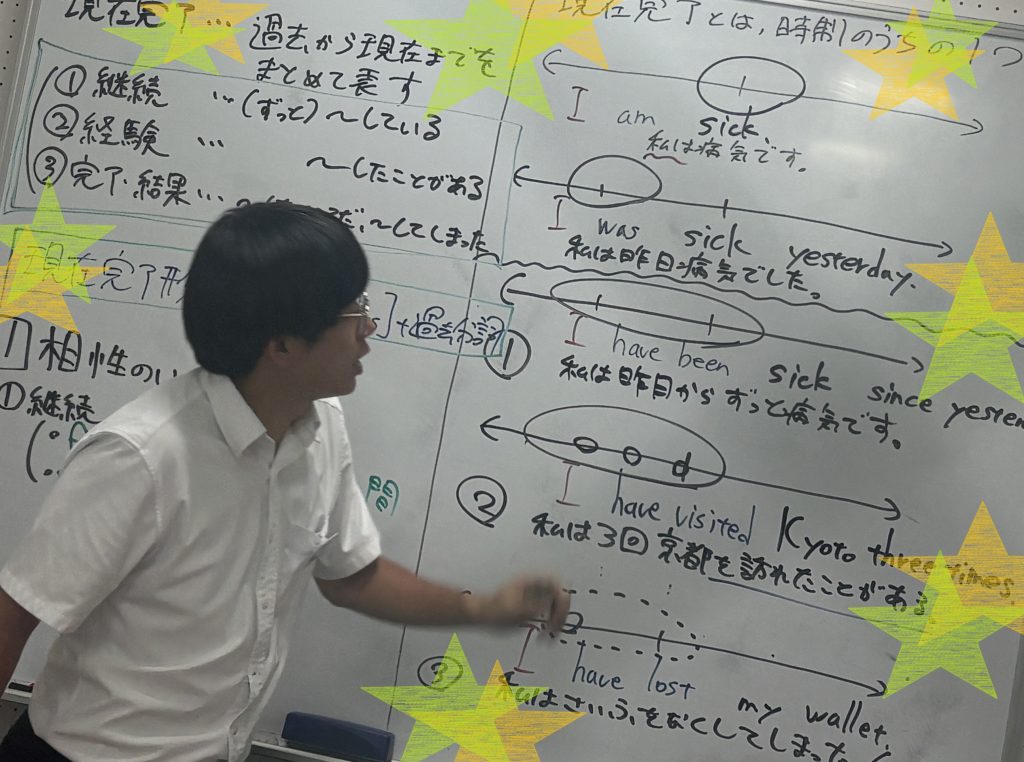 現在完了…
過去から現在までを
まとめて表す
① 継続 …(ずっと)〜している
② 経験 … 〜したことがある
③ 完了・結果… 〜してしまった
現在完了形
]+過去分詞
1 相性のい
① 継続
問
現在完了とは,時制のうちの1つ
I am sick.
私は病気です。
I was sick yesterday.
私は昨日病気でした。
① I have been sick since yester
私は昨日からずっと病気です。
② I have visited Kyoto three times.
私は3回京都を訪れたことがある
③ I have lost my wallet.
私はさいふをなくしてしまった